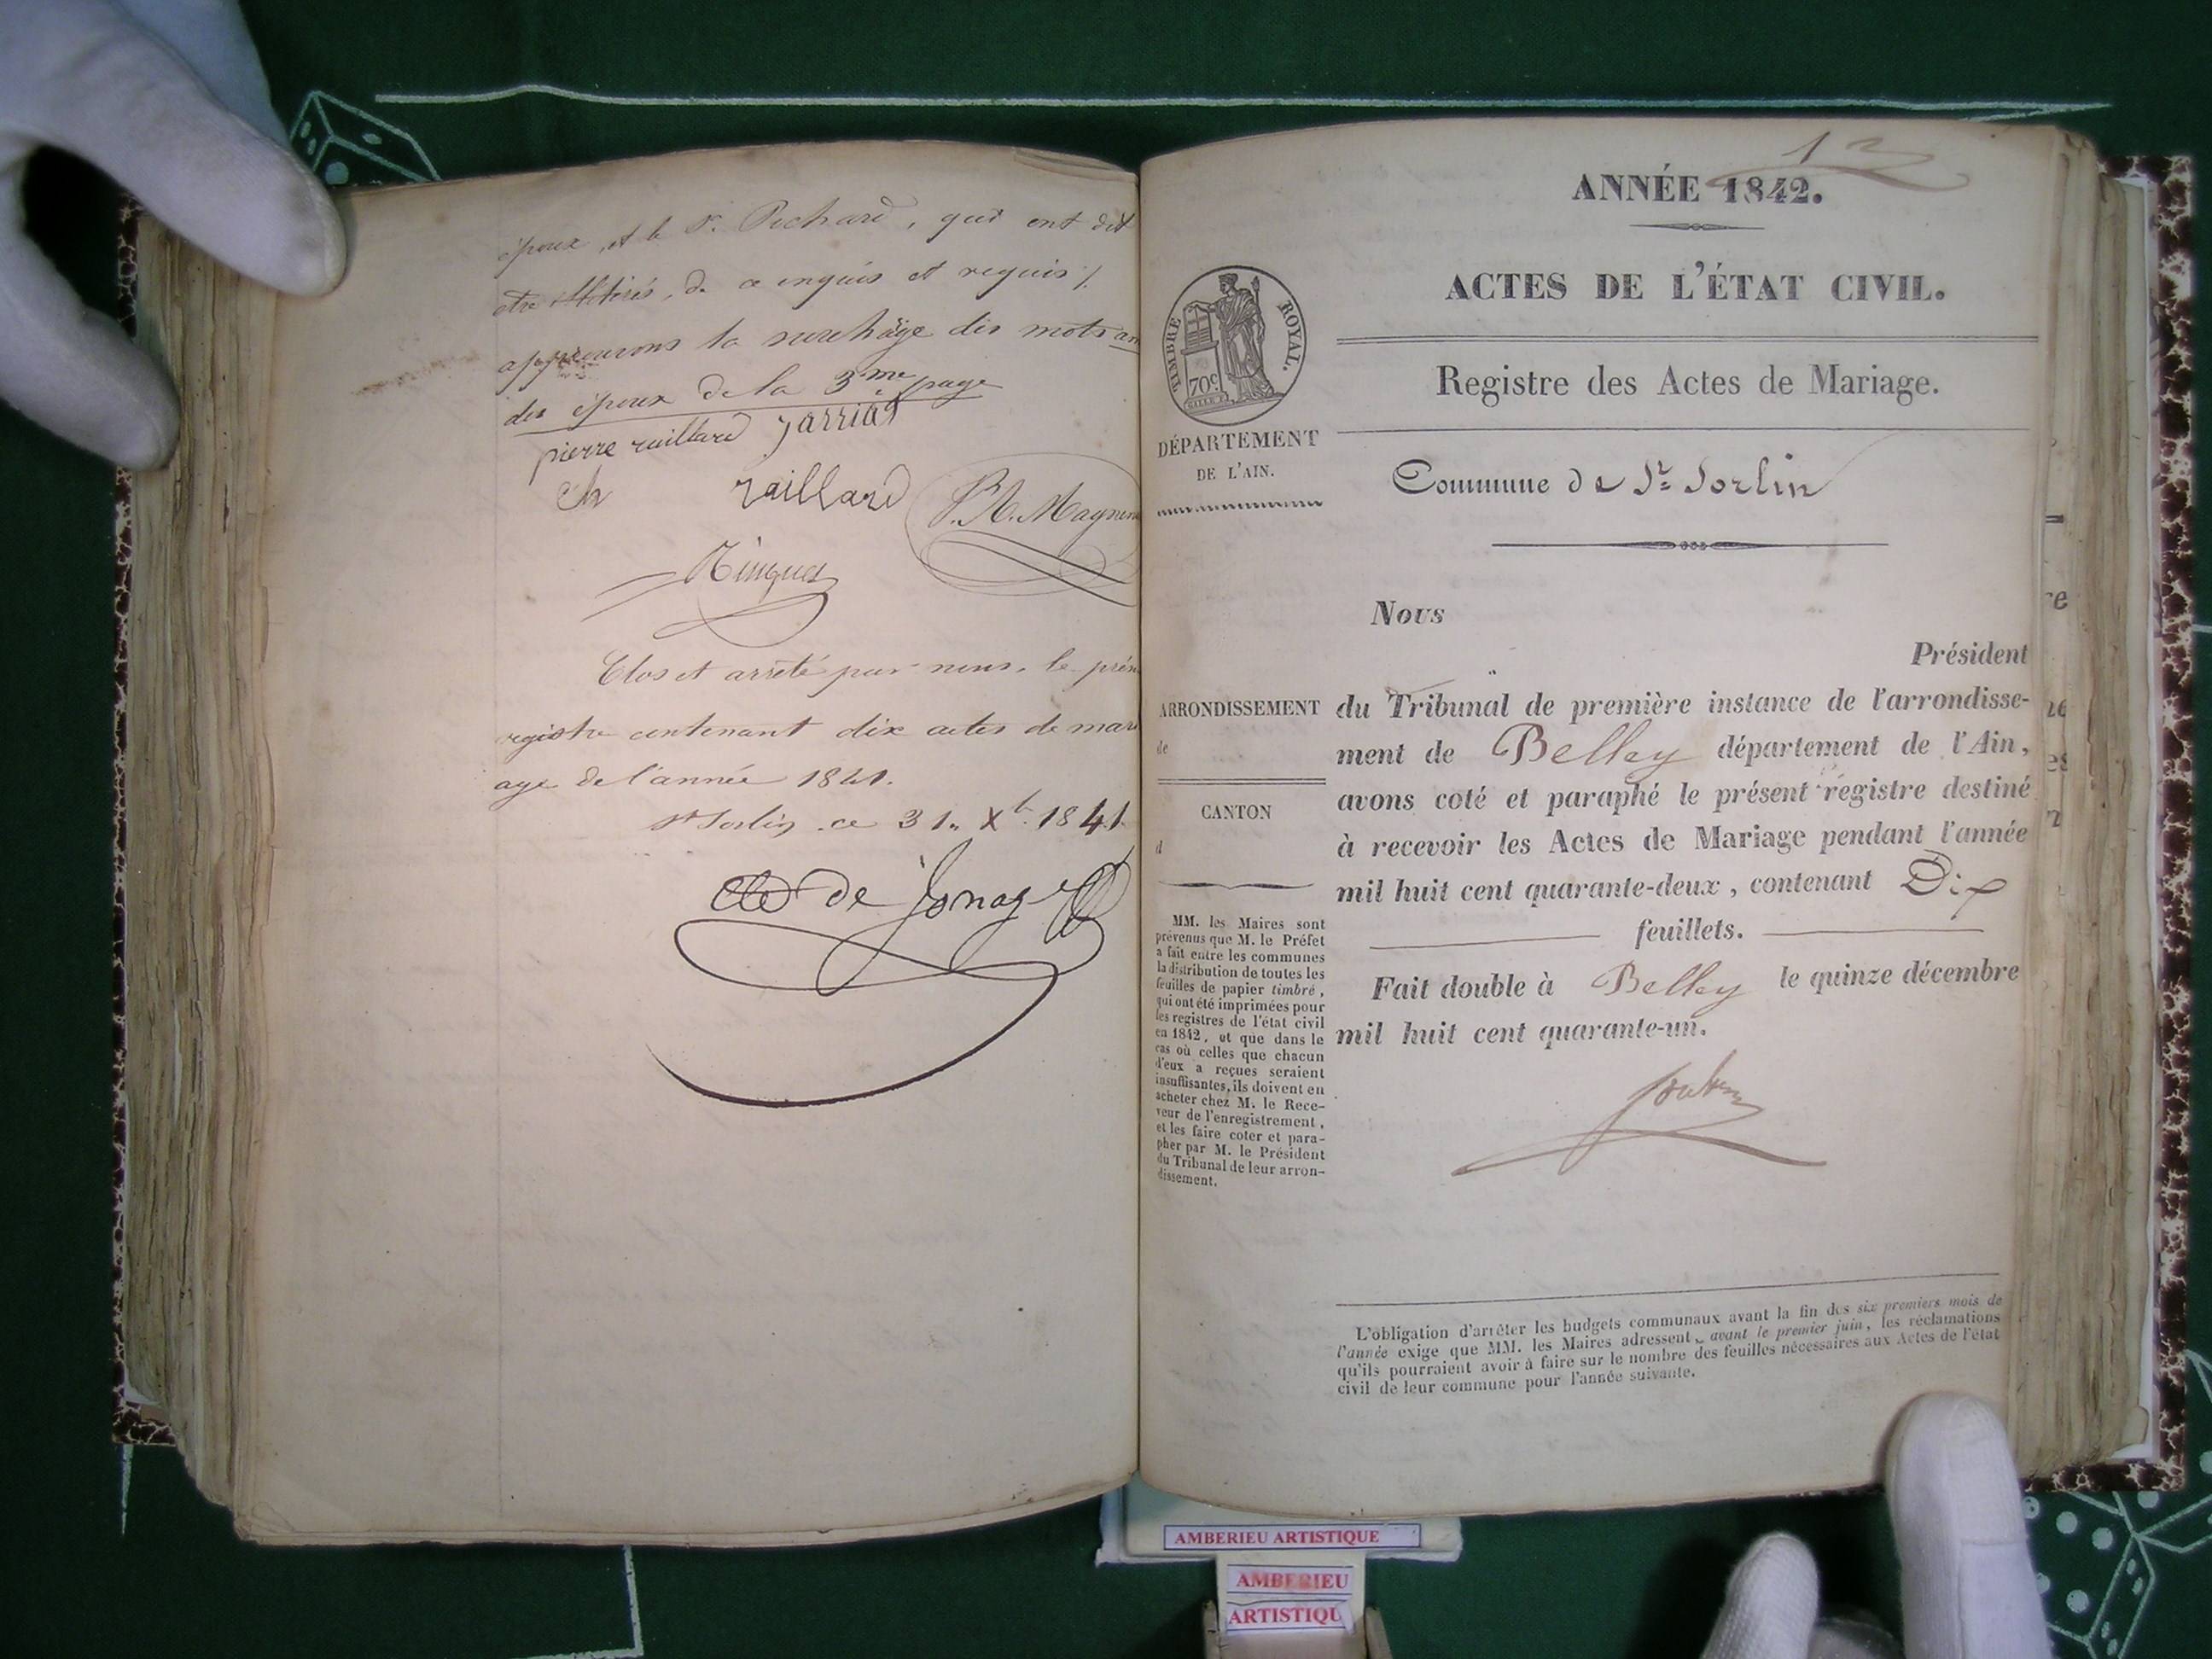 époux, et le Sr. Pichard, qui ont dit
être illétérés, de ce enquis et requis ./.
approuvons la surchage des mots an
des époux de la 3me page
pierre raillard jarriat
Ch raillard P. A. Magnin
Ringuet
Clos et arrêté par nous, le prén
registre contenant dix actes de mari
age de l'année 1841.
St Sorlin ce 31. Xb. 1841.
de Jonage
1
ANNÉE 1842.
ACTES DE L'ÉTAT CIVIL.
Registre des Actes de Mariage.
TIMBRE ROYAL.
70c
DÉPARTEMENT
DE L'AIN.
Commune de St Sorlin
Nous
Président
du Tribunal de première instance de l'arrondisse-
ment de Belley département de l'Ain,
avons coté et paraphé le présent registre destiné
à recevoir les Actes de Mariage pendant l'année
mil huit cent quarante-deux, contenant Dix
feuillets.
Fait double à Belley le quinze décembre
mil huit cent quarante-un.
ARRONDISSEMENT
de
CANTON
d
MM. les Maires sont
prévenus que M. le Préfet
a fait entre les communes
la distribution de toutes les
feuilles de papier timbré,
qui ont été imprimées pour
les registres de l'état civil
en 1842, et que dans le
cas où celles que chacun
d'eux a reçues seraient
insuffisantes, ils doivent en
acheter chez M. le Rece-
veur de l'enregistrement,
et les faire coter et para-
pher par M. le Président
du Tribunal de leur arron-
dissement.
L'obligation d'arrêter les budgets communaux avant la fin des six premiers mois de
l'année exige que MM. les Maires adressent, avant le premier juin, les réclamations
qu'ils pourraient avoir à faire sur le nombre des feuilles nécessaires aux Actes de l'état
civil de leur commune pour l'année suivante.
AMBERIEU ARTISTIQUE
AMBERIEU
ARTISTIQU